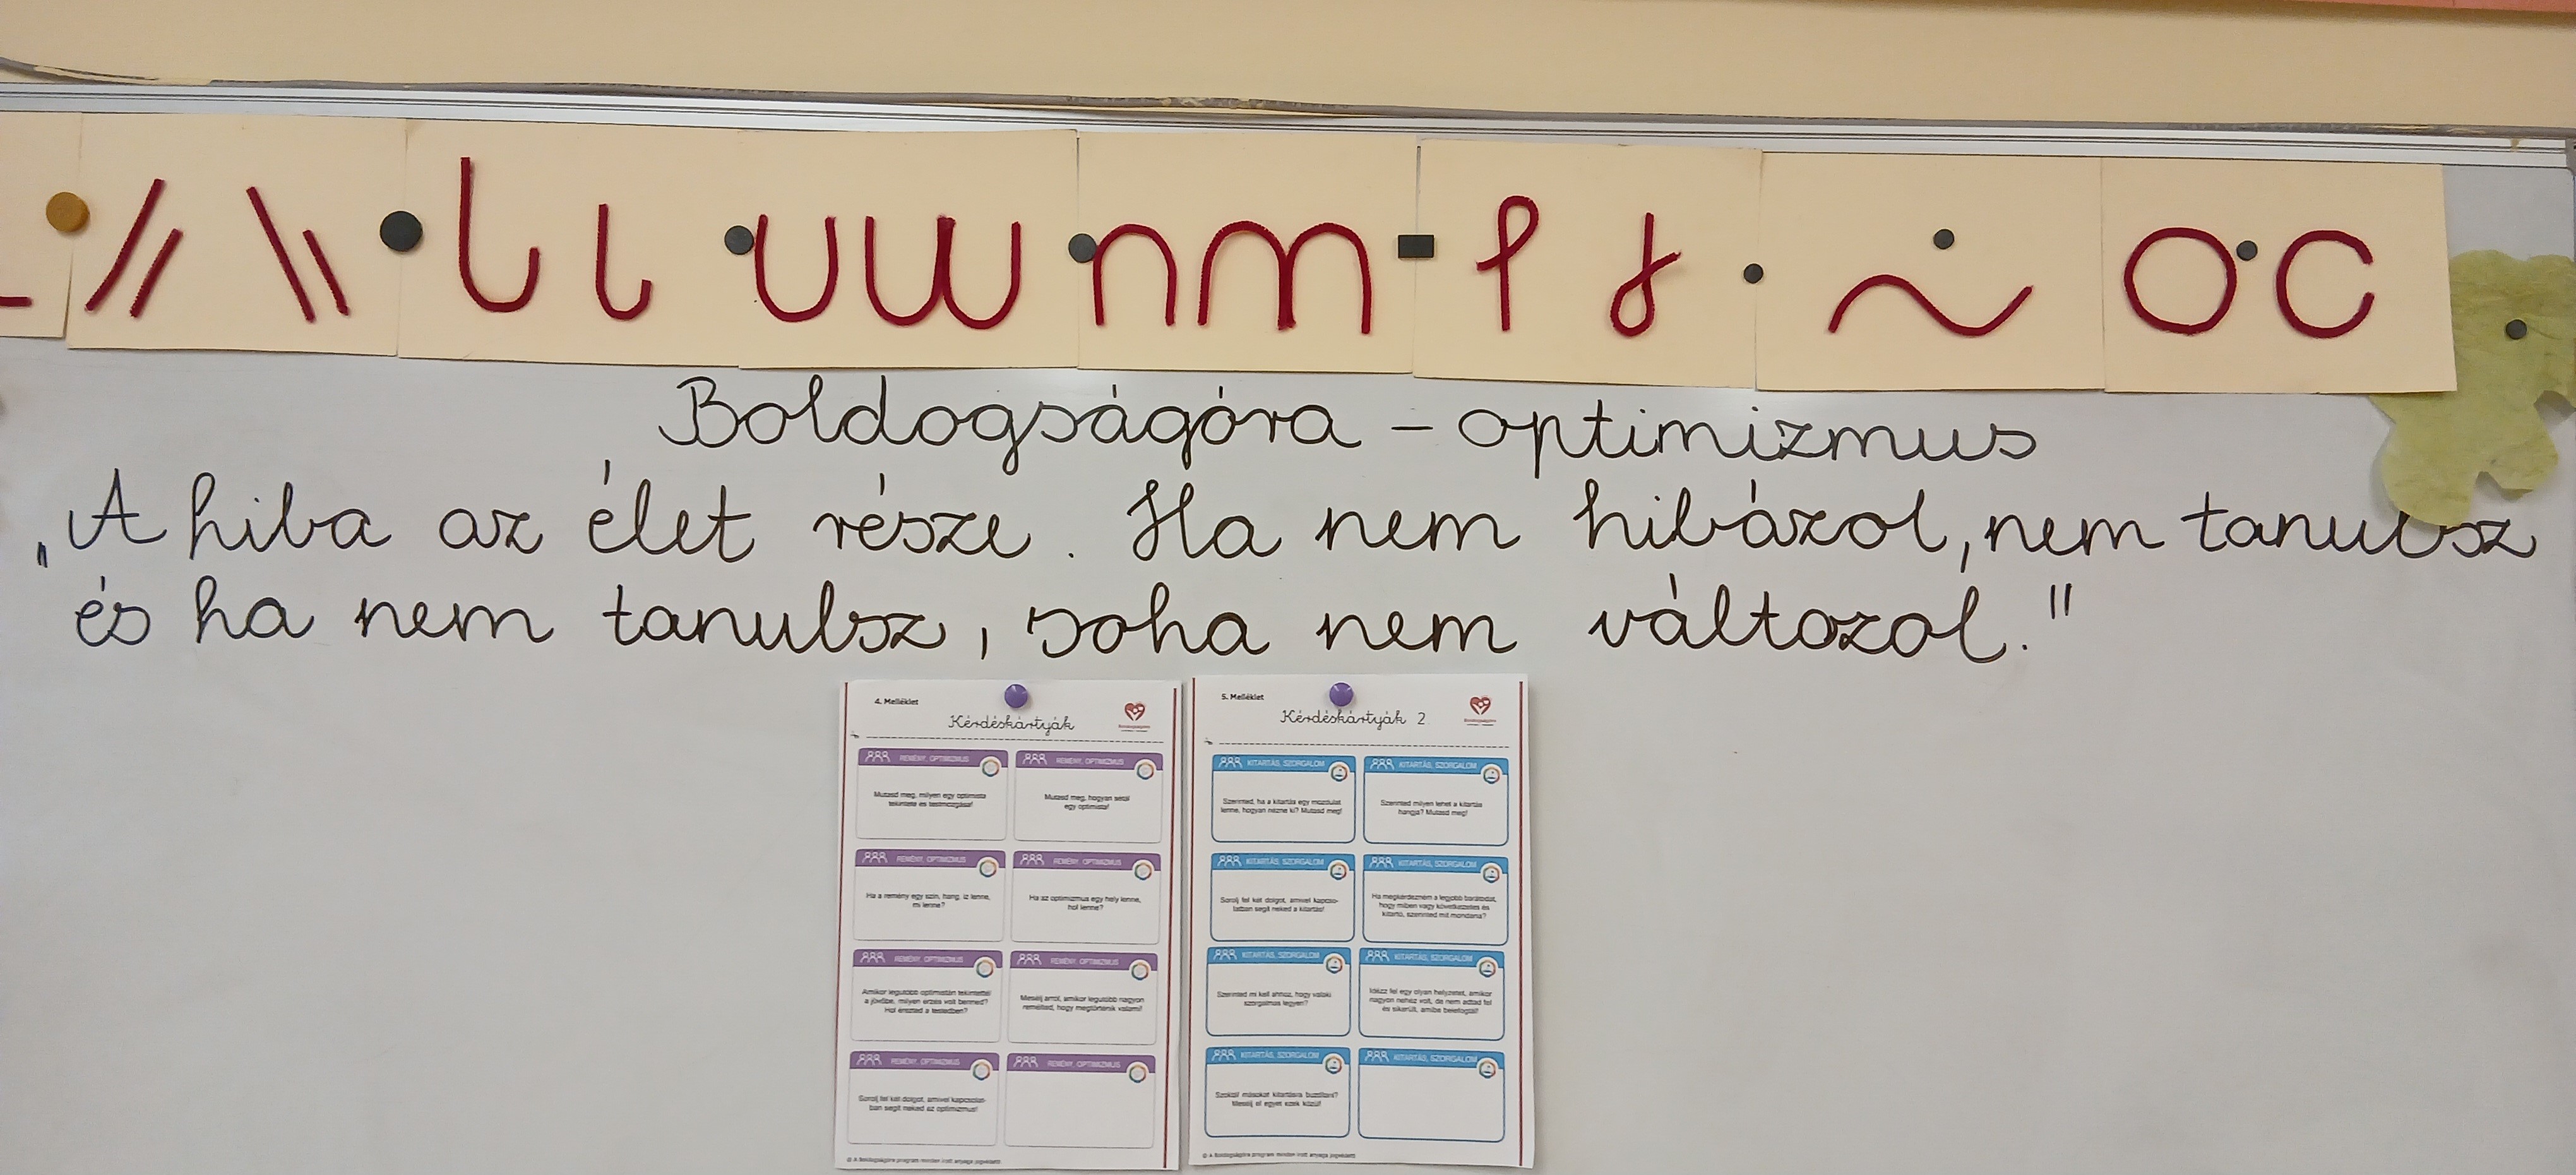 Boldogságóra – optimizmus
„A hiba az élet része. Ha nem hibázol, nem tanulsz
és ha nem tanulsz, soha nem változol."
4. Melléklet
Kérdéskártyák
Boldogságóra
REMÉNY, OPTIMIZMUS
Mutasd meg, milyen egy optimista
tekintete és testmozgása!
REMÉNY, OPTIMIZMUS
Mutasd meg, hogyan sétál
egy optimista!
REMÉNY, OPTIMIZMUS
Ha a remény egy szín, hang, íz lenne,
mi lenne?
REMÉNY, OPTIMIZMUS
Ha az optimizmus egy hely lenne,
hol lenne?
REMÉNY, OPTIMIZMUS
Amikor legutóbb optimistán tekintettél
a jövőbe, milyen érzés volt benned?
Hol érezted a testedben?
REMÉNY, OPTIMIZMUS
Mesélj arról, amikor legutóbb nagyon
remélted, hogy megtörténik valami!
REMÉNY, OPTIMIZMUS
Sorolj fel két dolgot, amivel kapcsolat-
ban segít neked az optimizmus!
REMÉNY, OPTIMIZMUS
© A Boldogságóra program minden írott anyaga jogvédett!
5. Melléklet
Kérdéskártyák 2.
Boldogságóra
KITARTÁS, SZORGALOM
Szerinted, ha a kitartás egy mozdulat
lenne, hogyan nézne ki? Mutasd meg!
KITARTÁS, SZORGALOM
Szerinted milyen lehet a kitartás
hangja? Mutasd meg!
KITARTÁS, SZORGALOM
Sorolj fel két dolgot, amivel kapcso-
latban segít neked a kitartás!
KITARTÁS, SZORGALOM
Ha megkérdezném a legjobb barátodat,
hogy miben vagy következetes és
kitartó, szerinted mit mondana?
KITARTÁS, SZORGALOM
Szerinted mi kell ahhoz, hogy valaki
szorgalmas legyen?
KITARTÁS, SZORGALOM
Idézz fel egy olyan helyzetet, amikor
nagyon nehéz volt, de nem adtad fel
és sikerült, amibe belefogtál!
KITARTÁS, SZORGALOM
Szoktál másokat kitartásra buzdítani?
Mesélj el egyet ezek közül!
KITARTÁS, SZORGALOM
© A Boldogságóra program minden írott anyaga jogvédett!